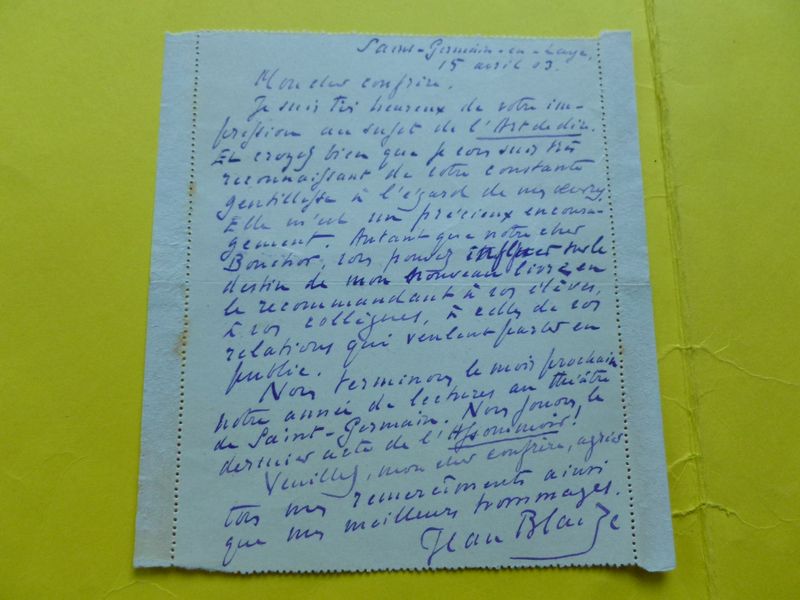 Saint-Germain-en-Laye,
15 avril 03.
Mon cher confrère,
Je suis très heureux de votre im-
pression au sujet de l'Art de dire.
Et croyez bien que je vous suis très
reconnaissant de votre constante
gentillesse à l'égard de mes œuvres.
Elle m'est un précieux encoura-
gement. Autant que notre cher
vous pouvez influer sur le
destin de mon nouveau livre en
le recommandant à vos élèves,
à vos collègues, à celles de vos
relations qui veulent parler en
public.
Nous terminons le mois prochain
notre année de lectures au théâtre
de Saint-Germain. Nous jouons le
dernier acte de l'Assommoir!
Veuillez, mon cher confrère, agréer
tous mes remerciments ainsi
que mes meilleurs hommages.
Jean Blaize